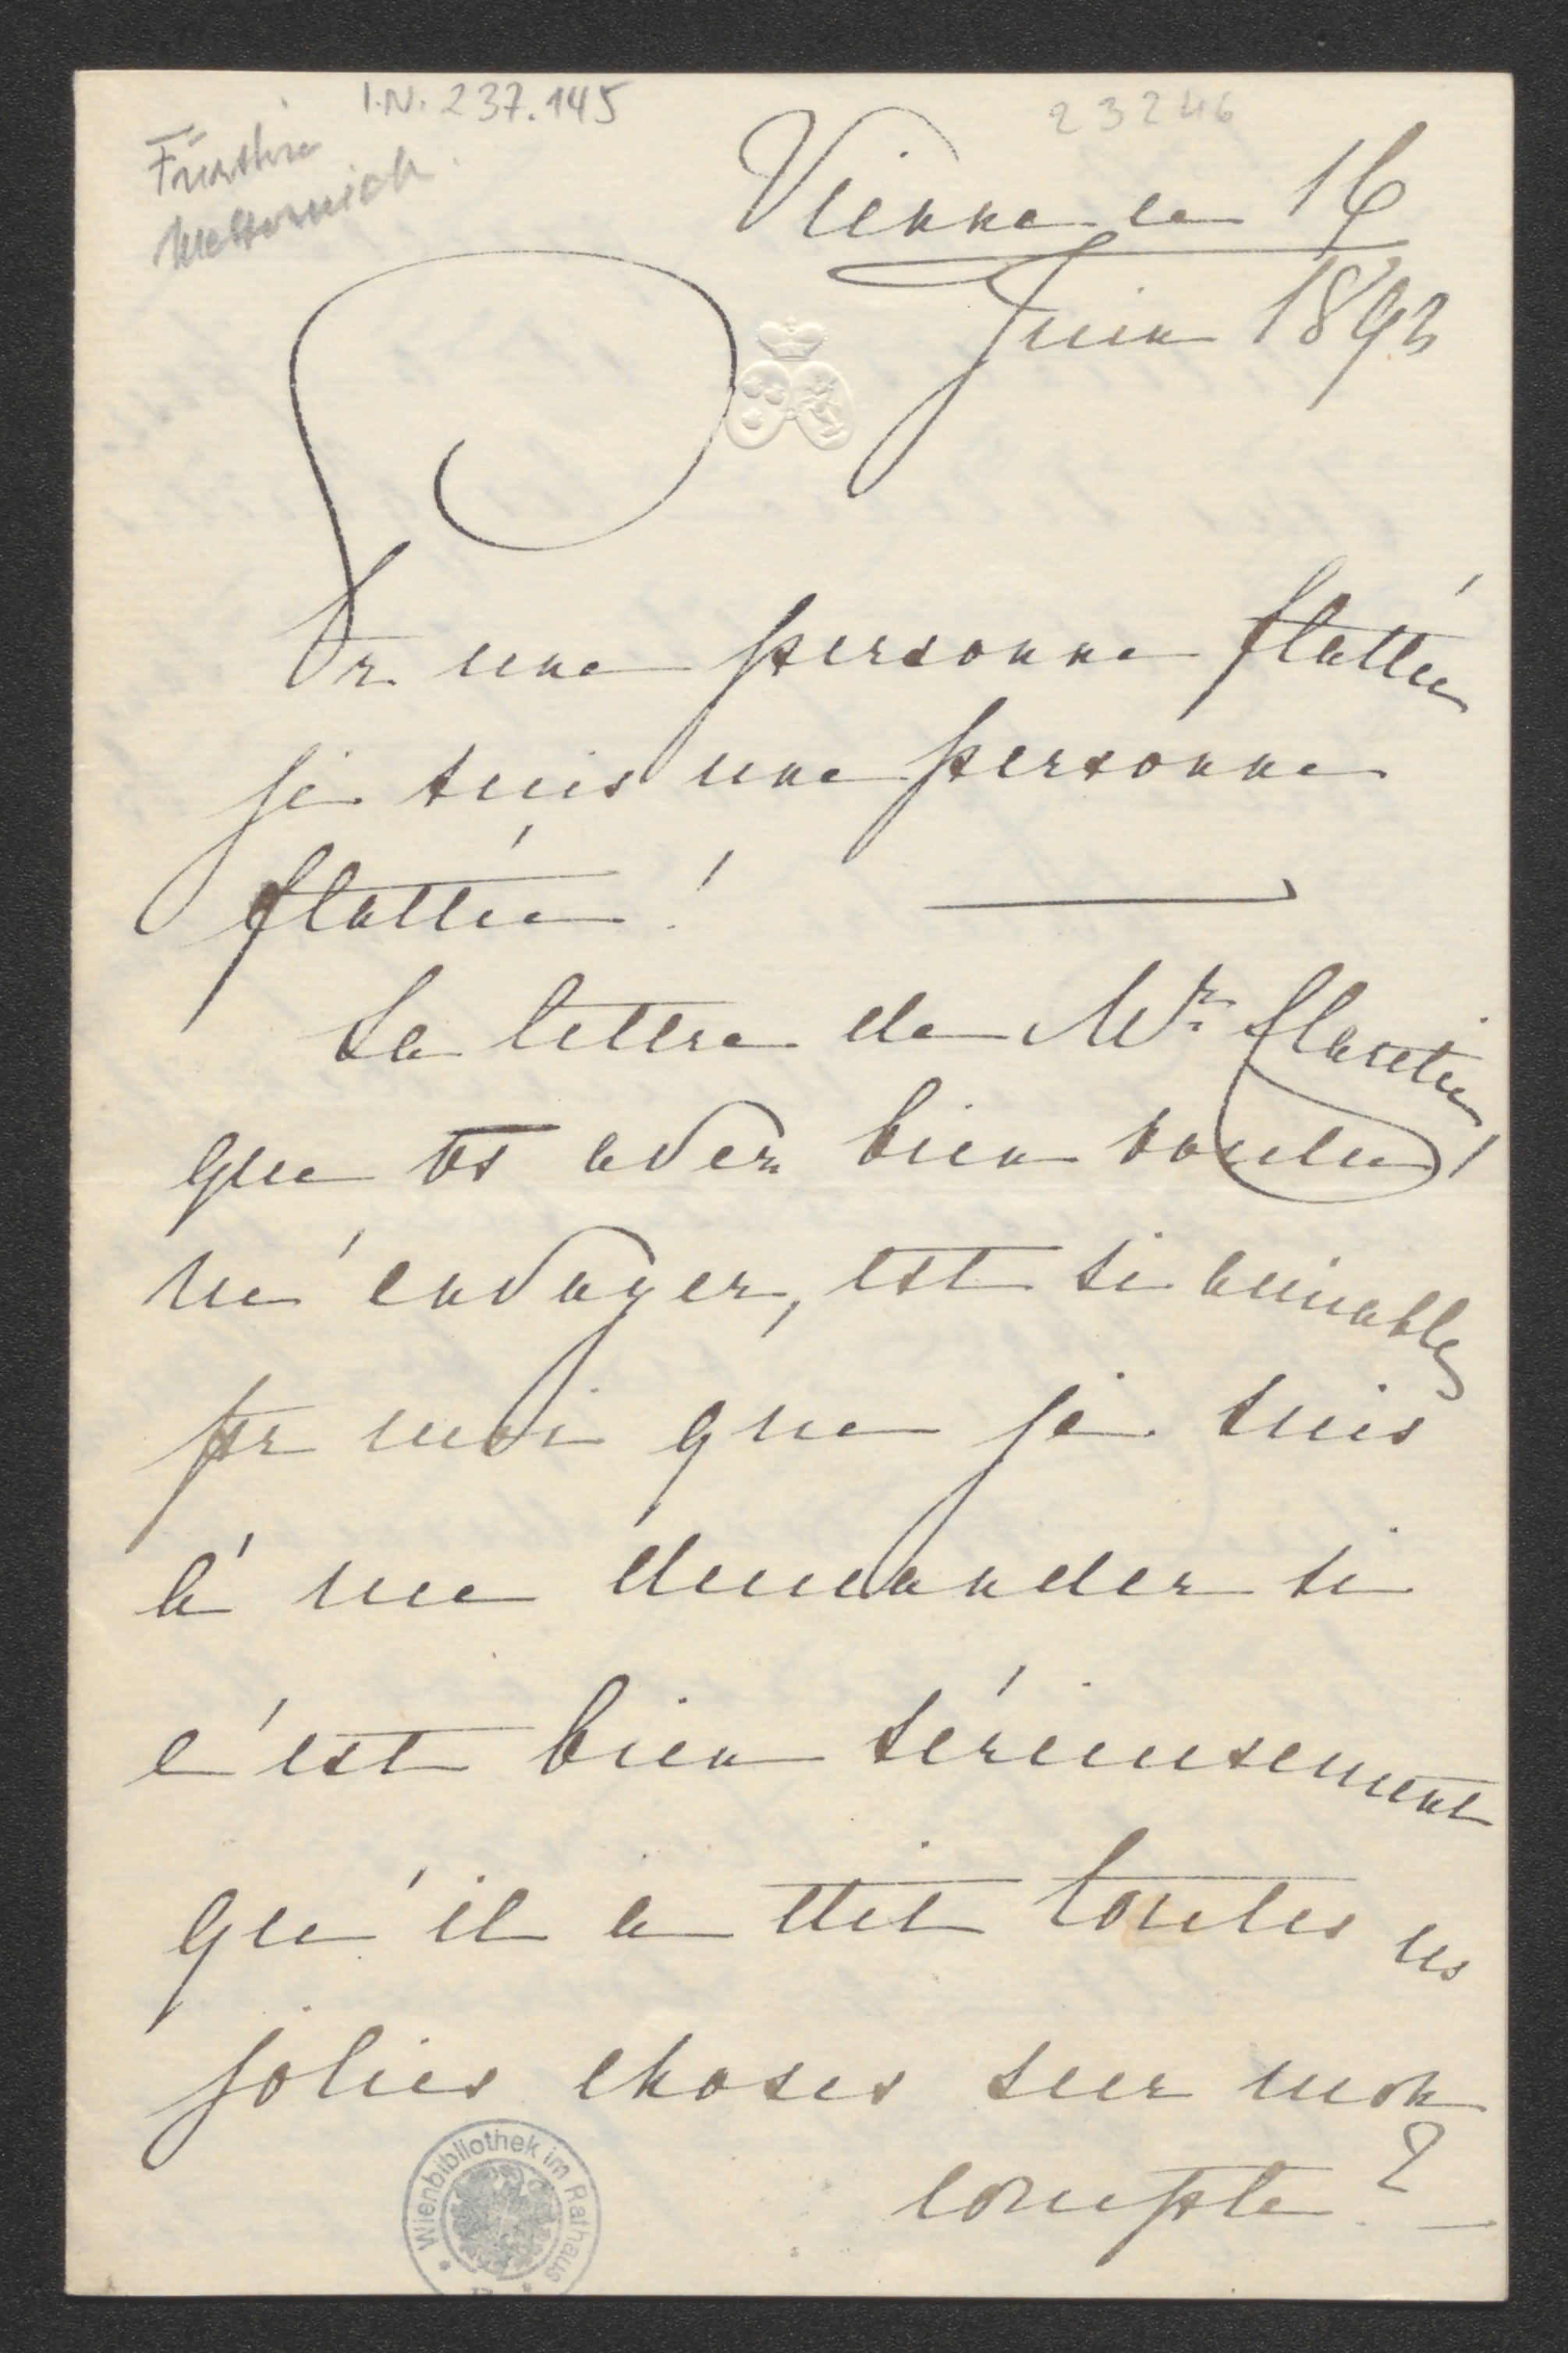 I.N. 237.145
23246
Fürstin
Metternich.
Vienne le 16
Juin 1892
Pr une personne flattée
je suis une personne
flattée!
La lettre de Mr Claretie
que vs avez bien voulu
m'envoyer, est si aimable
pr moi que je suis
à me demander si
c'est bien sérieusement
qu'il a dit toutes ces
jolies choses sur mon
compte? —
Wienbibliothek im Rathaus